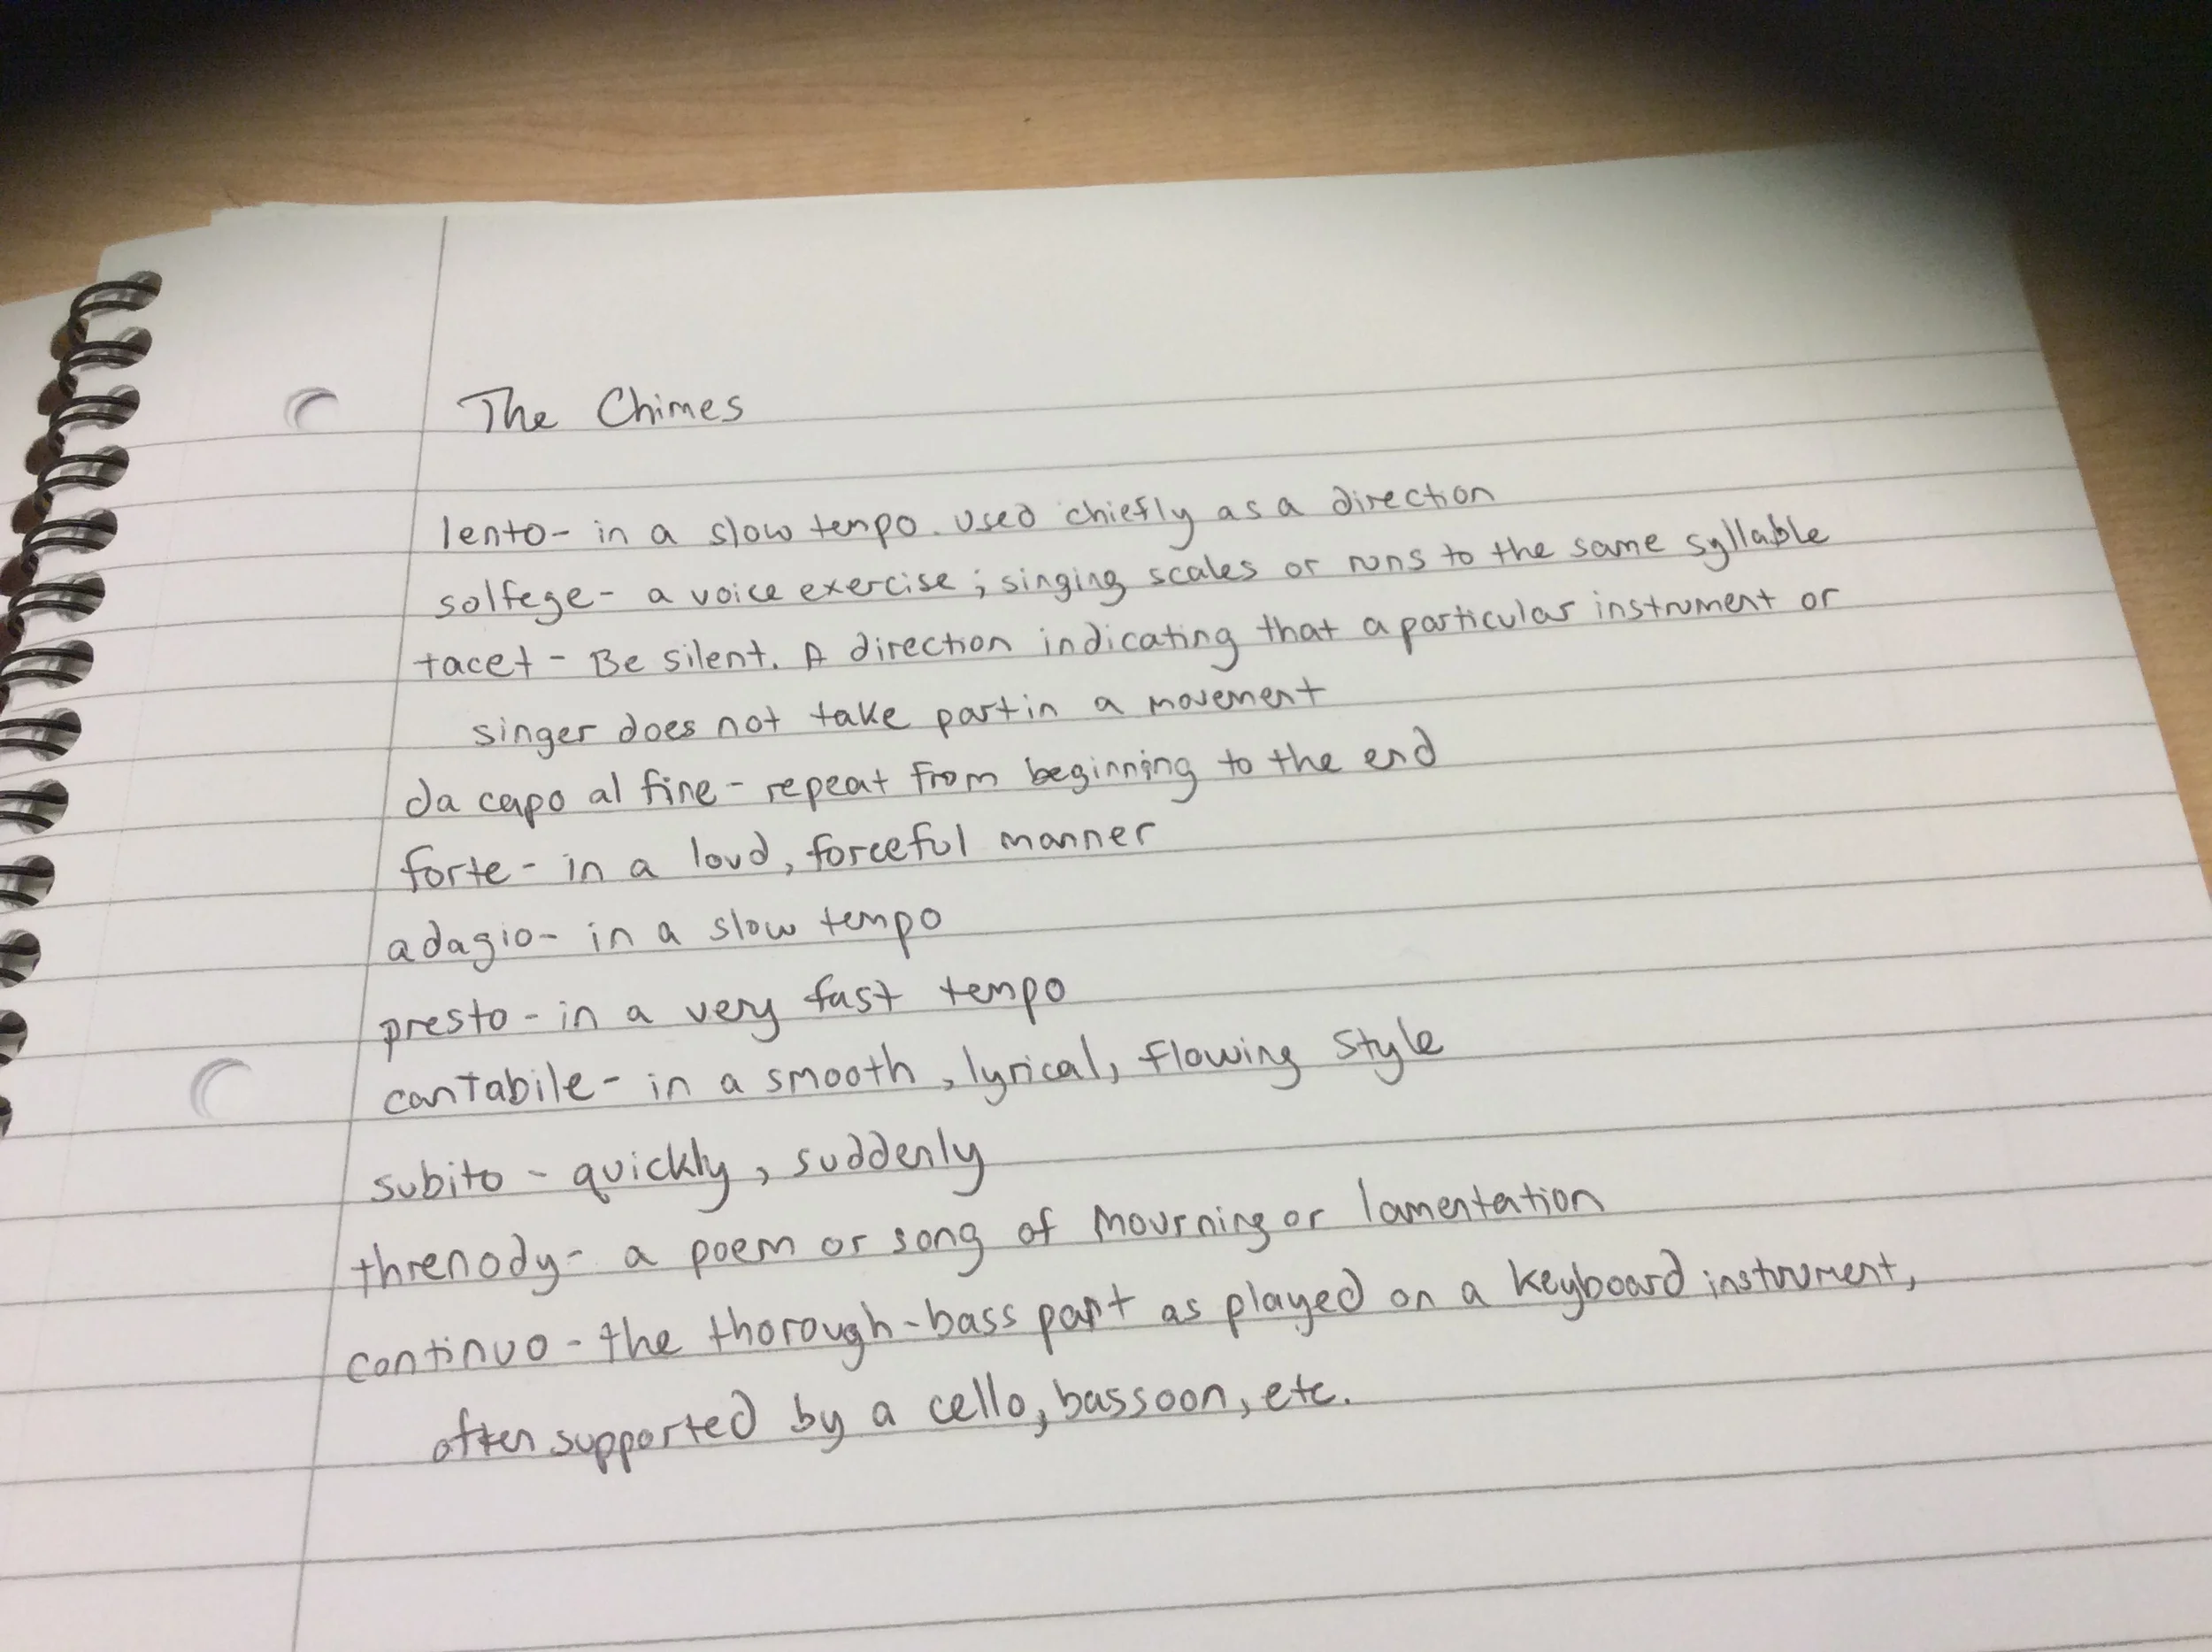 The Chimes
lento- in a slow tempo. Used chiefly as a direction
solfege- a voice exercise; singing scales or runs to the same syllable
tacet- Be silent. A direction indicating that a particular instrument or
singer does not take part in a movement
da capo al fine- repeat from beginning to the end
forte- in a loud, forceful manner
adagio- in a slow tempo
presto- in a very fast tempo
cantabile- in a smooth, lyrical, flowing style
subito- quickly, suddenly
threnody- a poem or song of mourning or lamentation
continuo- the thorough-bass part as played on a keyboard instrument,
often supported by a cello, bassoon, etc.